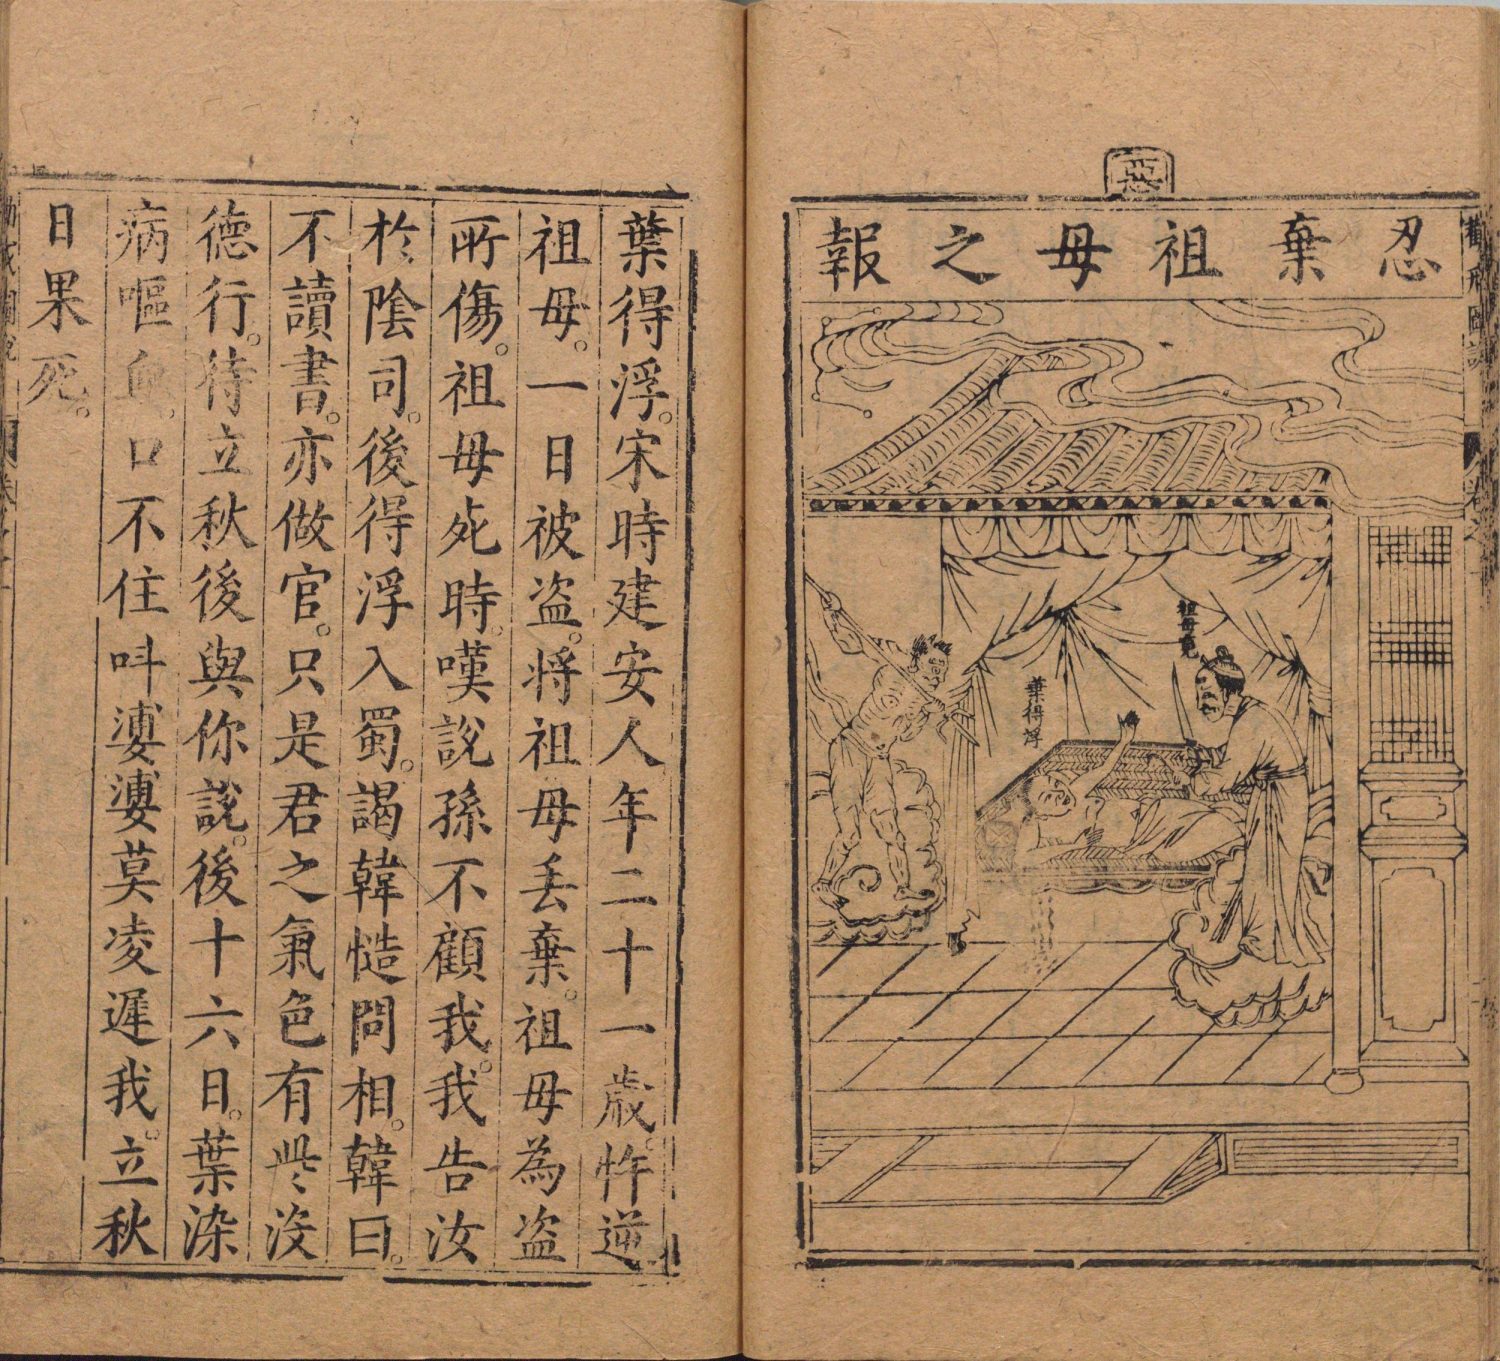 惡
忍棄祖母之報
祖母鬼
葉得浮
葉得浮。宋時建安人年二十一歲。忤逆
祖母。一日被盗。將祖母丢棄。祖母為盗
所傷。祖母死時。嘆說孫不顧我。我告汝
於陰司。後得浮入蜀。謁韓慥問相。韓曰。
不讀書。亦做官。只是君之氣色有些没
德行。待立秋後與你說。後十六日。葉染
病嘔血。口不住呌婆婆莫凌遲我。立秋
日果死。